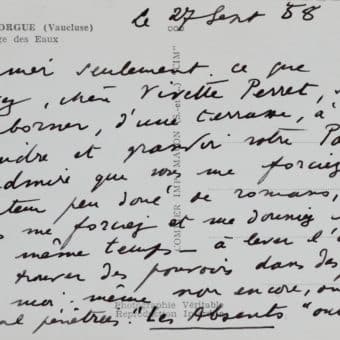 ORGUE (Vaucluse)
ge des Eaux
le 27 Sept 58
mer seulement ce que
chère Vivette Perret,
borner, d'une terrasse, à
ndre et grandir votre Pa
dmire que vous me forciez
teur peu doué de romans,
me forciez et me donniez
même temps - à lever l'
trouver des pouvoirs dans des
moi-même non encore, ou
al pénétrées. "Les Absents"
COMBIER IMP. MACON (S.-et-L.) "CIM"
Photographie Véritable
Reproduction In